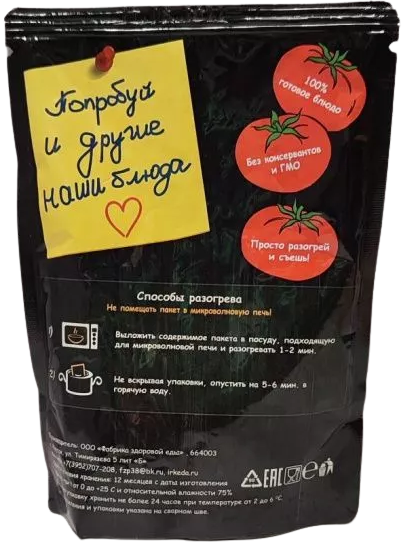 Попробуй
и другие
наши блюда
100%
готовое блюдо
Без консервантов
и ГМО
Просто разогрей
и съешь!
Способы разогрева
Не помещать пакет в микроволновую печь!
Выложить содержимое пакета в посуду, подходящую
для микроволновой печи и разогревать 1-2 мин.
2)
Не вскрывая упаковки, опустить на 5-6 мин. в
горячую воду.
ООО «Фабрика здоровой еды» , 664003
ул. Тимирязева 5 лит «Б»
+7(3952)707-208, fzp38@bk.ru, irkeda.ru
хранения: 12 месяцев с даты изготовления
от 0 до +25 С и относительной влажности 75%
упаковку хранить не более 24 часов при температуре от 2 до 6 °С.
и упаковки указана на сварном шве.
EAC